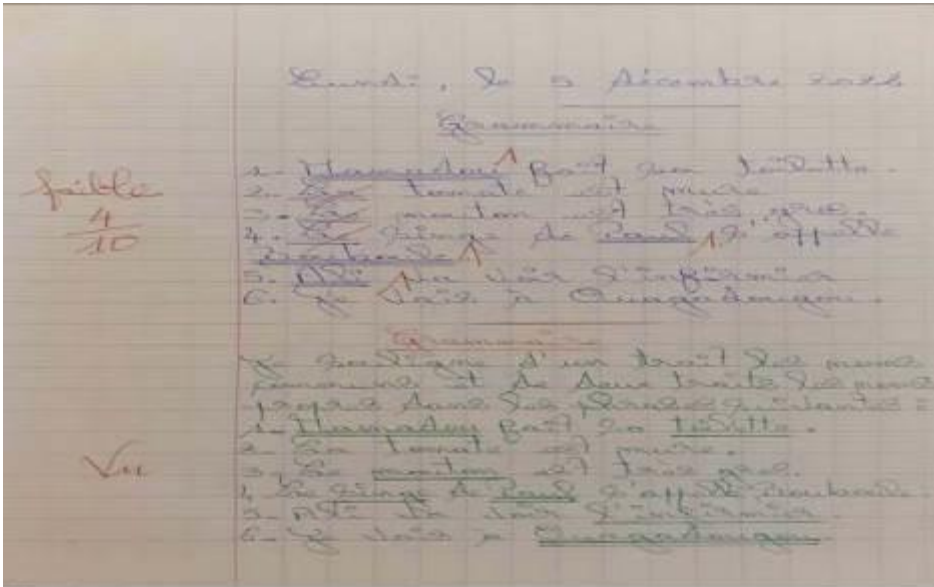 Lundi, le 5 décembre 2022
Grammaire
faible
4
10
1- Hamadou fait sa toilette.
2- La tomate est mure.
3- Le mouton est très gros.
4- Le singe de Paul s'appelle
5- Ali va voir l'infirmier
6- Je vais à Ouagadougou.
Grammaire
Je souligne d'un trait les noms
communs et de deux traits les noms
propres dans les phrases suivantes :
1- Hamadou fait sa toilette.
2- La tomate est mure.
3- Le mouton est très gros.
4- Le singe de Paul s'appelle
5- Ali va voir l'infirmier
6- Je vais à Ouagadougou.
Vu